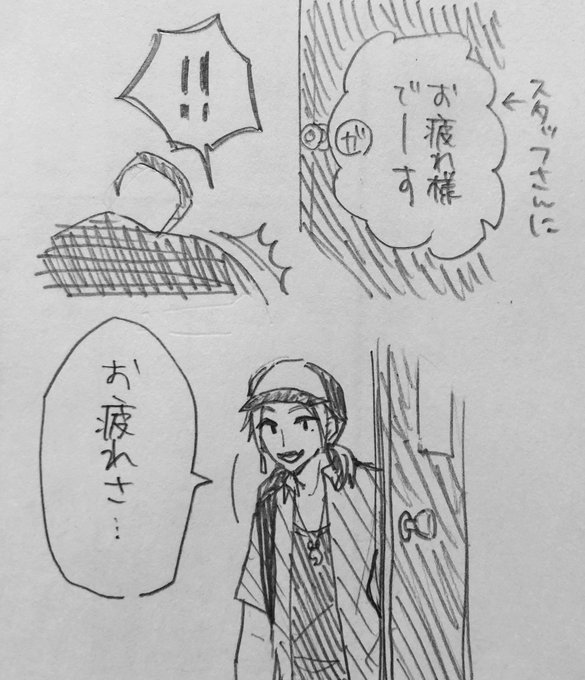 ←スタッフさんに
お疲れ様
でーす
ガ
!!
お疲れさ…